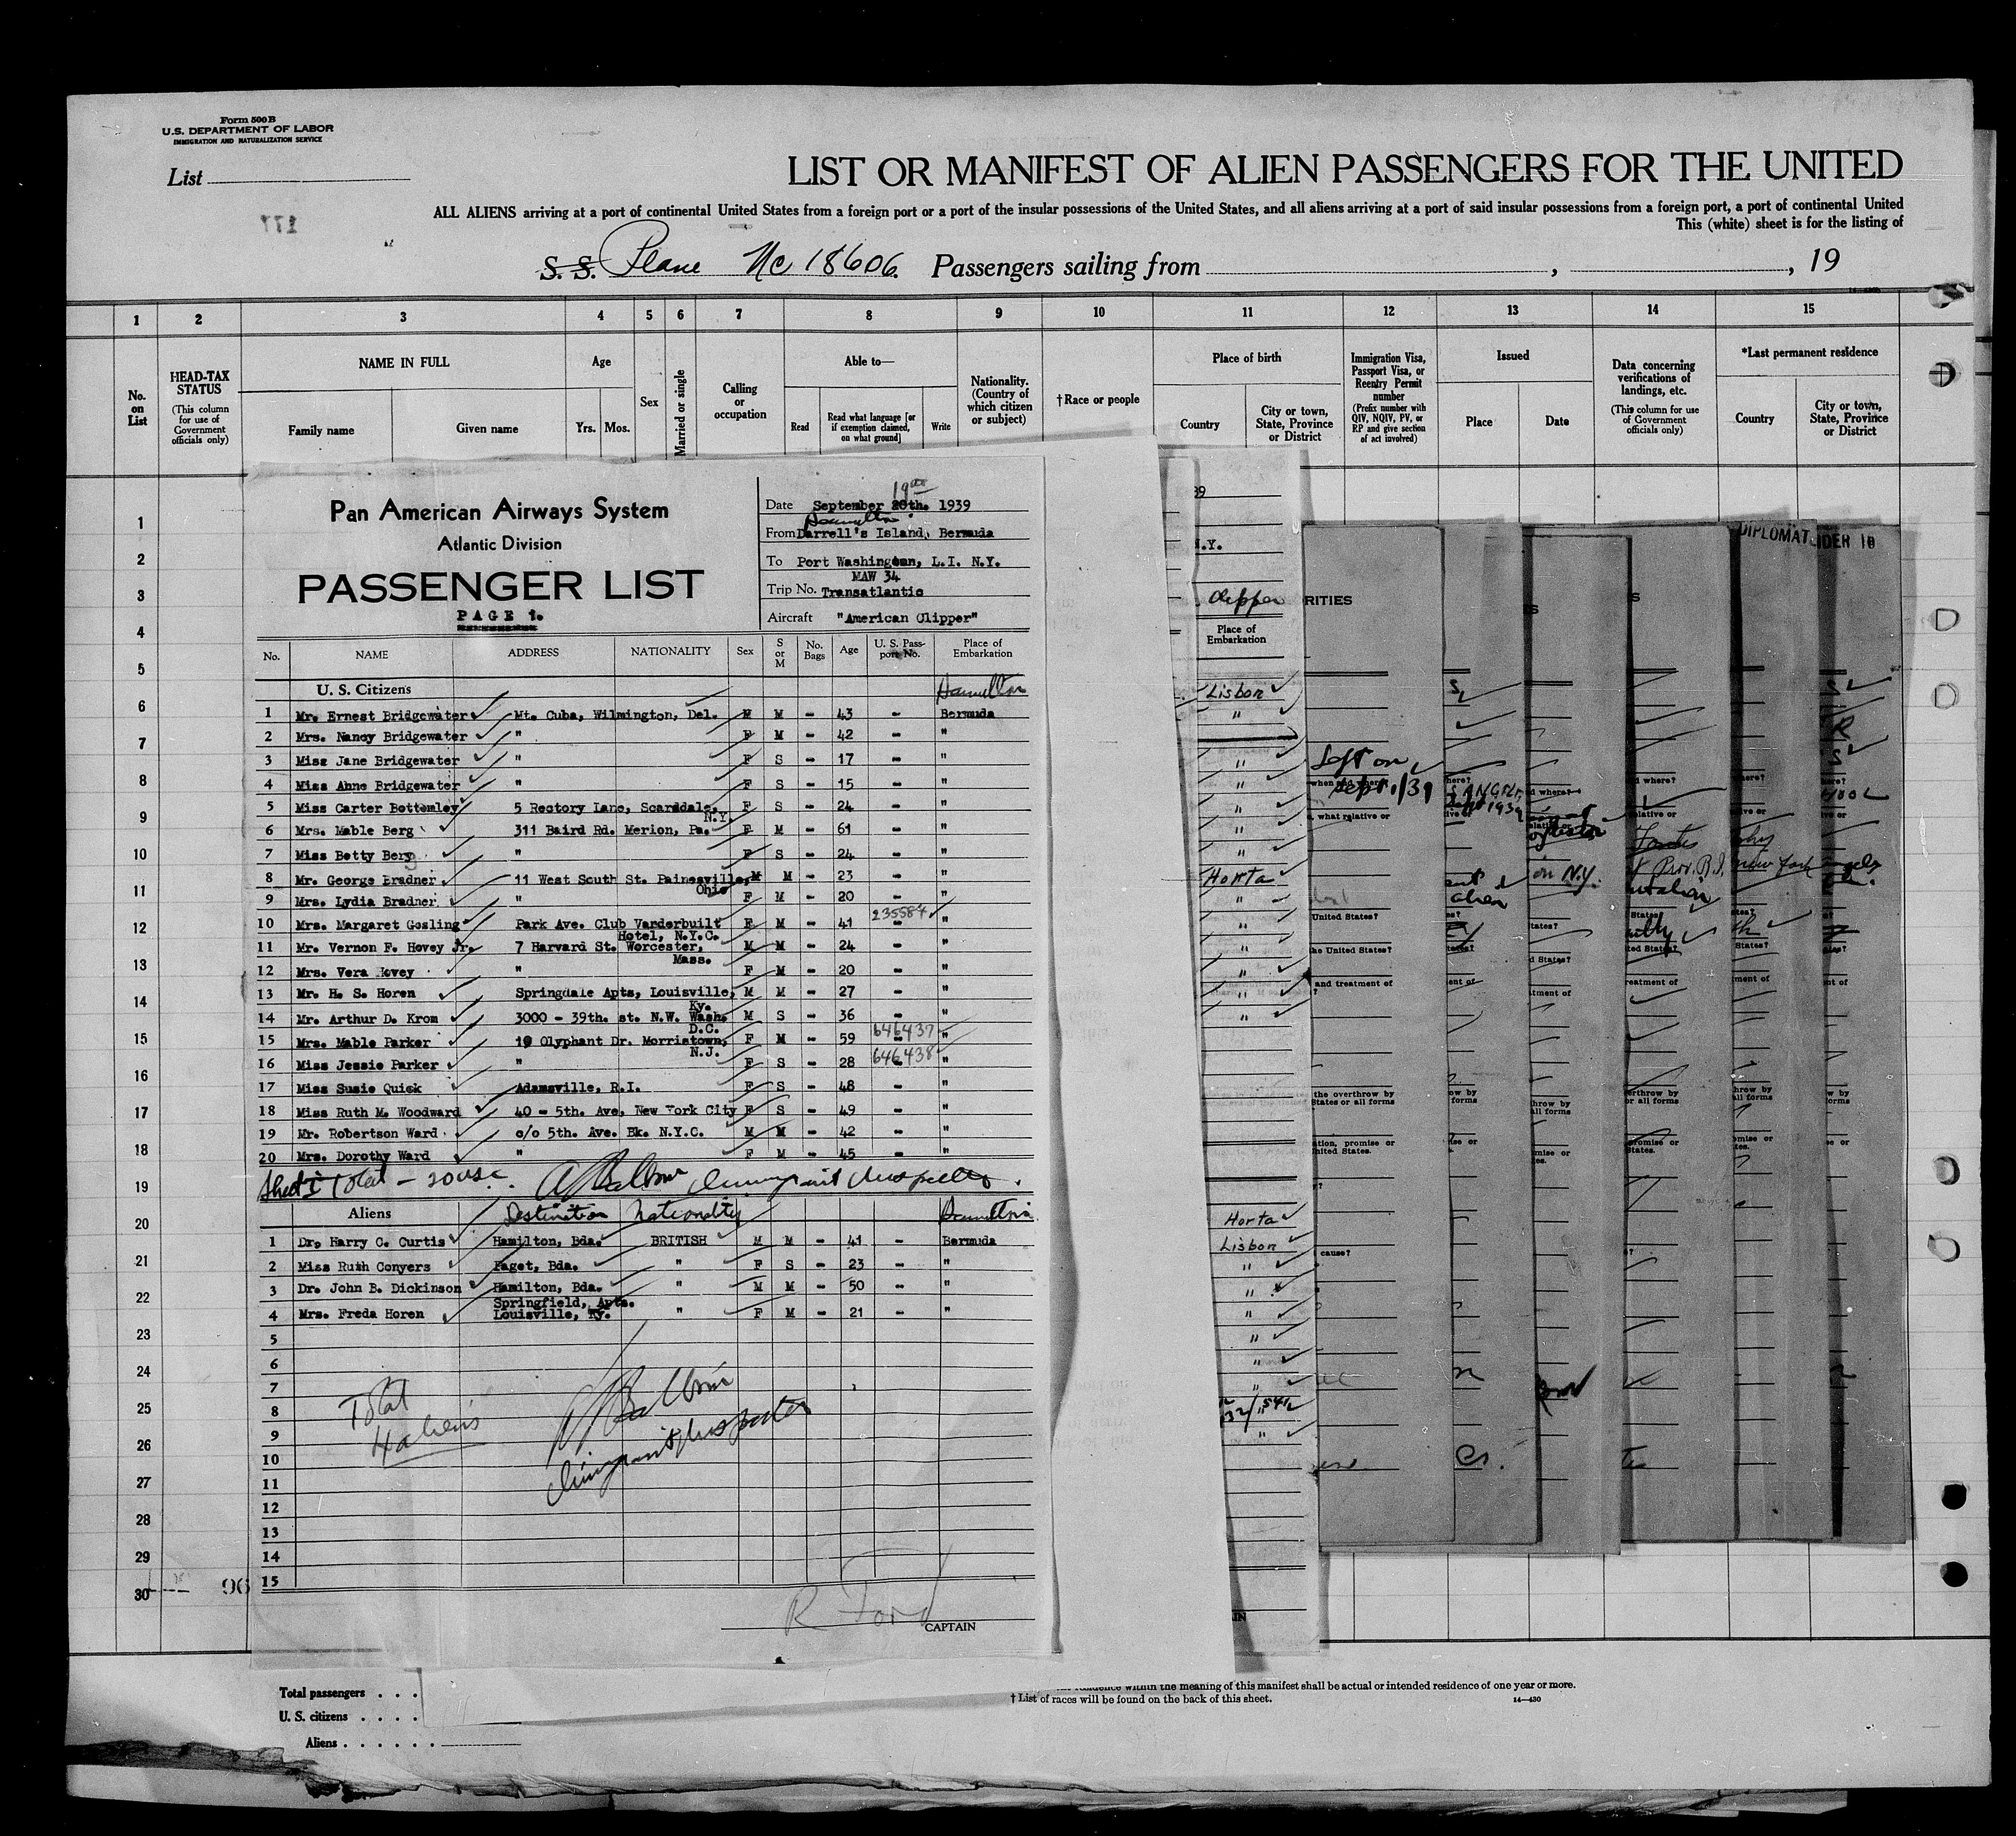 Form 500 B
U.S. DEPARTMENT OF LABOR
IMMIGRATION AND NATURALIZATION SERVICE
List
LIST OR MANIFEST OF ALIEN PASSENGERS FOR THE UNITED
ALL ALIENS arriving at a port of continental United States from a foreign port or a port of the insular possessions of the United States, and all aliens arriving at a port of said insular possessions from a foreign port, a port of continental United
This (white) sheet is for the listing of
177
S. S. Plane Nc 18606. Passengers sailing from , , 19
1 2 3 4 5 6 7 8 9 10 11 12 13 14 15
No. on List
HEAD-TAX STATUS
(This column for use of Government officials only)
NAME IN FULL
Family name Given name
Age
Yrs. Mos.
Sex
Married or single
Calling or occupation
Able to—
Read
Read what language [or if exemption claimed, on what ground]
Write
Nationality. (Country of which citizen or subject)
† Race or people
Place of birth
Country
City or town, State, Province or District
Immigration Visa, Passport Visa, or Reentry Permit number
(Prefix number with QIV, NQIV, PV, or RP and give section of act involved)
Issued
Place Date
Data concerning verifications of landings, etc.
(This column for use of Government officials only)
*Last permanent residence
Country
City or town, State, Province or District
1
2
3
4
5
6
7
8
9
10
11
12
13
14
15
16
17
18
19
20
21
22
23
24
25
26
27
28
29
30
96
Pan American Airways System
Atlantic Division
PASSENGER LIST
PAGE 1.
19th
Date September 20th. 1939
Hamilton
From Darrell's Island, Bermuda
To Port Washington, L.I. N.Y.
MAW 34
Trip No. Transatlantic
Aircraft "American Clipper"
No. NAME ADDRESS NATIONALITY Sex S or M No. Bags Age U. S. Passport No. Place of Embarkation
U. S. Citizens Hamilton
1 Mr. Ernest Bridgewater Mt. Cuba, Wilmington, Del. M M - 43 - Bermuda
2 Mrs. Nancy Bridgewater " F M - 42 - "
3 Miss Jane Bridgewater " F S - 17 - "
4 Miss Anne Bridgewater " F S - 15 - "
5 Miss Carter Bottomley 5 Rectory Lane, Scarsdale, N.Y. F S - 24 - "
6 Mrs. Mable Berg 311 Baird Rd. Merion, Pa. F M - 61 - "
7 Miss Betty Berg " F S - 24 - "
8 Mr. George Bradner 11 West South St. Painesville, Ohio M M - 23 - "
9 Mrs. Lydia Bradner " F M - 20 - "
10 Mrs. Margaret Gosling Park Ave. Club Vanderbuilt Hotel, N.Y.C. F M - 41 235587 "
11 Mr. Vernon F. Hovey Jr. 7 Harvard St. Worcester, Mass. M M - 24 - "
12 Mrs. Vera Hovey " F M - 20 - "
13 Mr. H. S. Horen Springdale Apts, Louisville, Ky. M M - 27 - "
14 Mr. Arthur D. Krom 3000 - 39th. st. N.W. Wash. D.C. M S - 36 - "
15 Mrs. Mable Parker 19 Olyphant Dr. Morristown, N.J. F M - 59 646437 "
16 Miss Jessie Parker " F S - 28 646438 "
17 Miss Susie Quick Adamsville, R.I. F S - 48 - "
18 Miss Ruth M. Woodward 40 - 5th. Ave, New York City F S - 49 - "
19 Mr. Robertson Ward c/o 5th. Ave. Bk. N.Y.C. M M - 42 - "
20 Mrs. Dorothy Ward " F M - 45 - "
Sheet I Total - 20 USC. Immigrant Inspector.
Aliens Destination Nationality Hamilton
1 Dr. Harry C. Curtis Hamilton, Bda. BRITISH M M - 41 - Bermuda
2 Miss Ruth Conyers Paget, Bda. " F S - 23 - "
3 Dr. John B. Dickinson Hamilton, Bda. " M M - 50 - "
4 Mrs. Freda Horen Springfield, Apts. Louisville, Ky. " F M - 21 - "
5
6
7
8
9
10
11
12
13
14
15
Total
4 aliens
Immigrant Inspector
R Ford
CAPTAIN
39
N.Y.
Clipper
Place of Embarkation
Lisbon
"
"
"
"
"
"
Horta
"
"
"
"
"
"
Horta
Lisbon
"
"
"
"
"
"
"
RITIES
DIPLOMAT
IDER 10
Left on
Sept. 1/39
what relative or
United States?
the United States?
and treatment of
the overthrow by
States or all forms
ation, promise or
United States.
cause?
on N.Y.
Prov. R.I.
new York
Total passengers . . .
U. S. citizens . . . .
Aliens . . . . . .
residence within the meaning of this manifest shall be actual or intended residence of one year or more.
† List of races will be found on the back of this sheet.
14—430